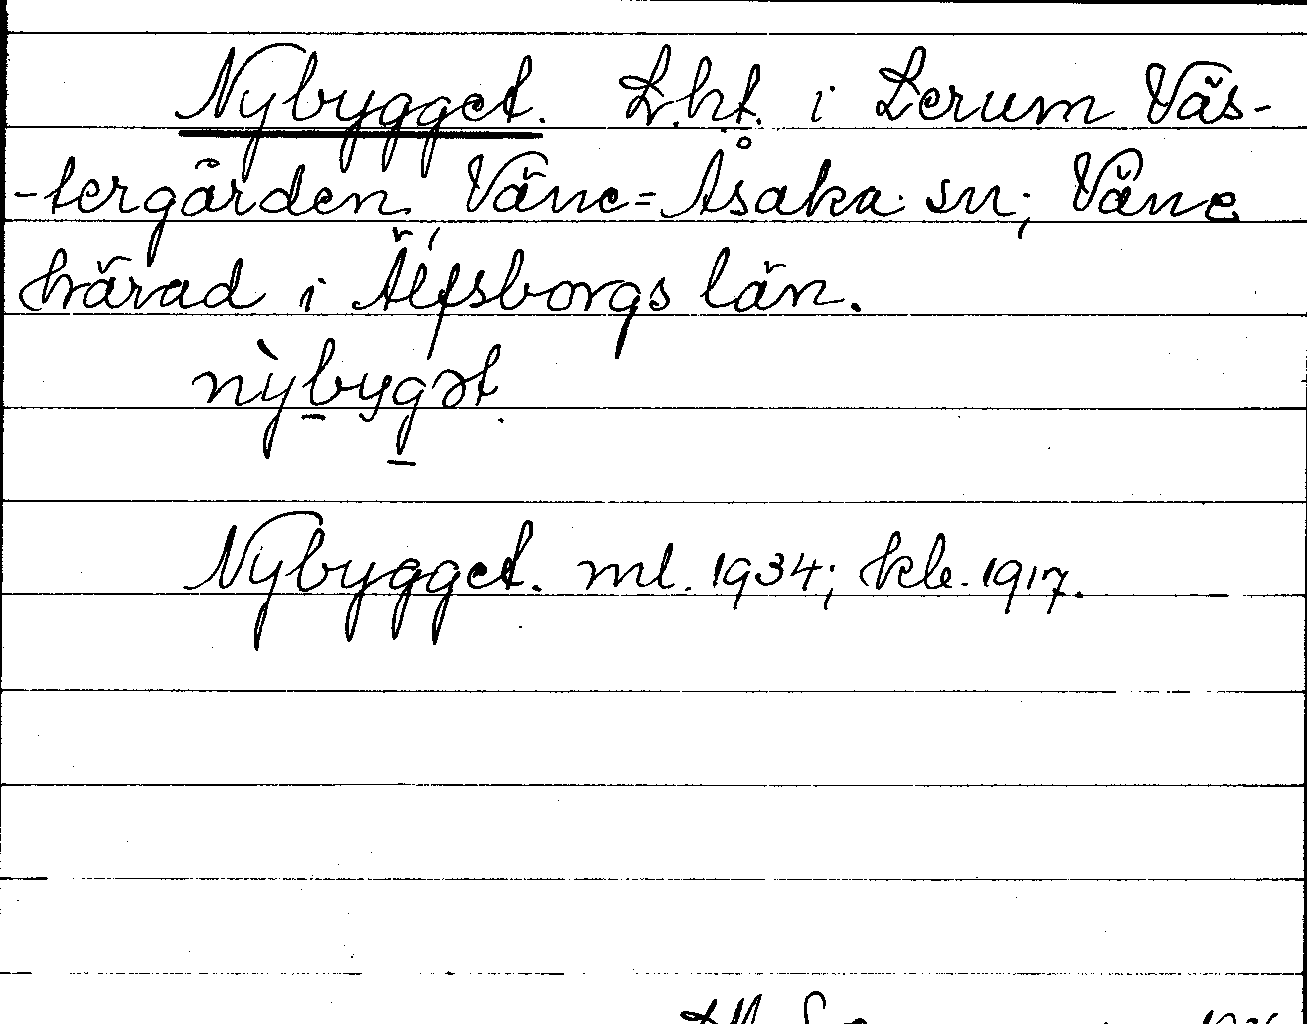 Nybygget. L.ht. i Lerum Väs-
-tergården. Väne=Åsaka sn; Väne
härad i Älfsborgs län.
nỳbygət.
Nybygget. ml. 1934; kle. 1917.